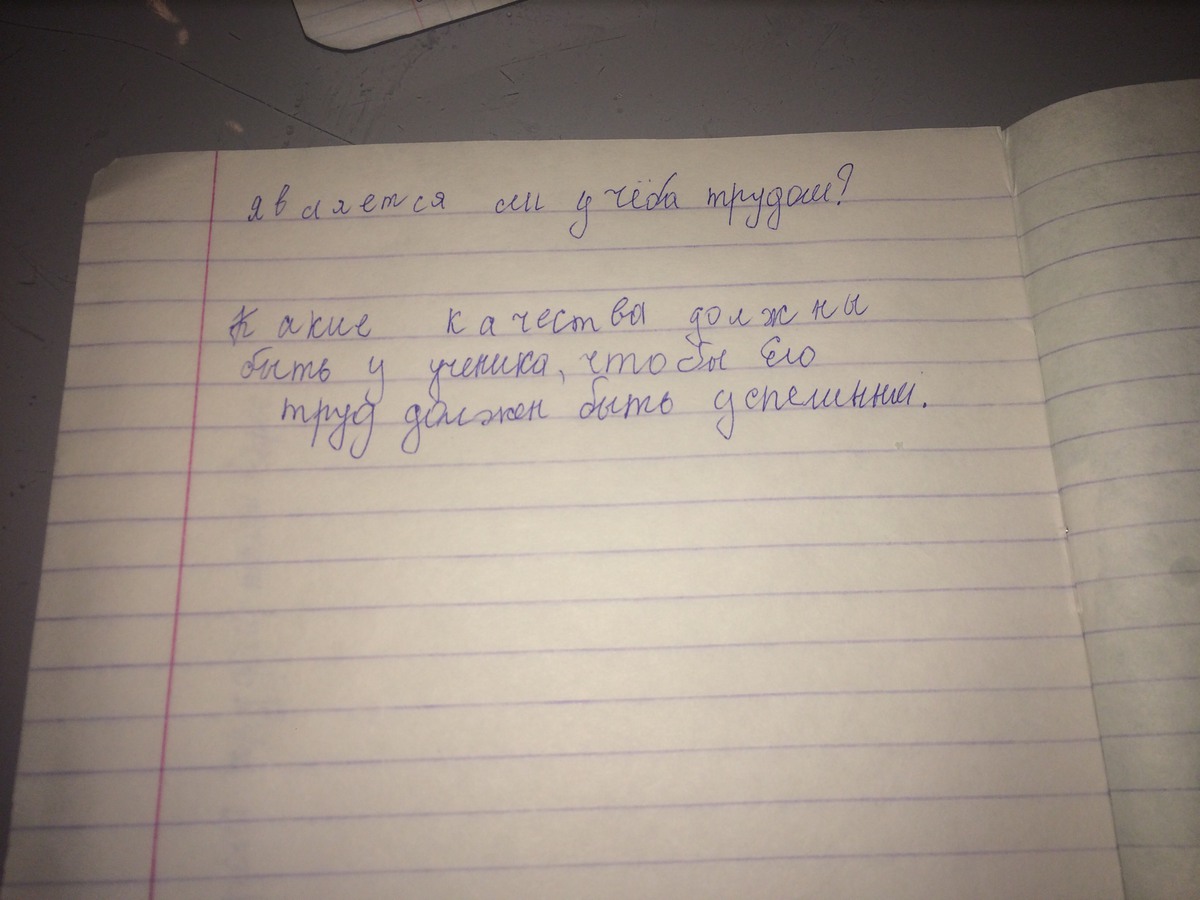 является ли учёба трудом?
Какие качества должны
быть у ученика, чтобы Его
труд должен быть успешным.